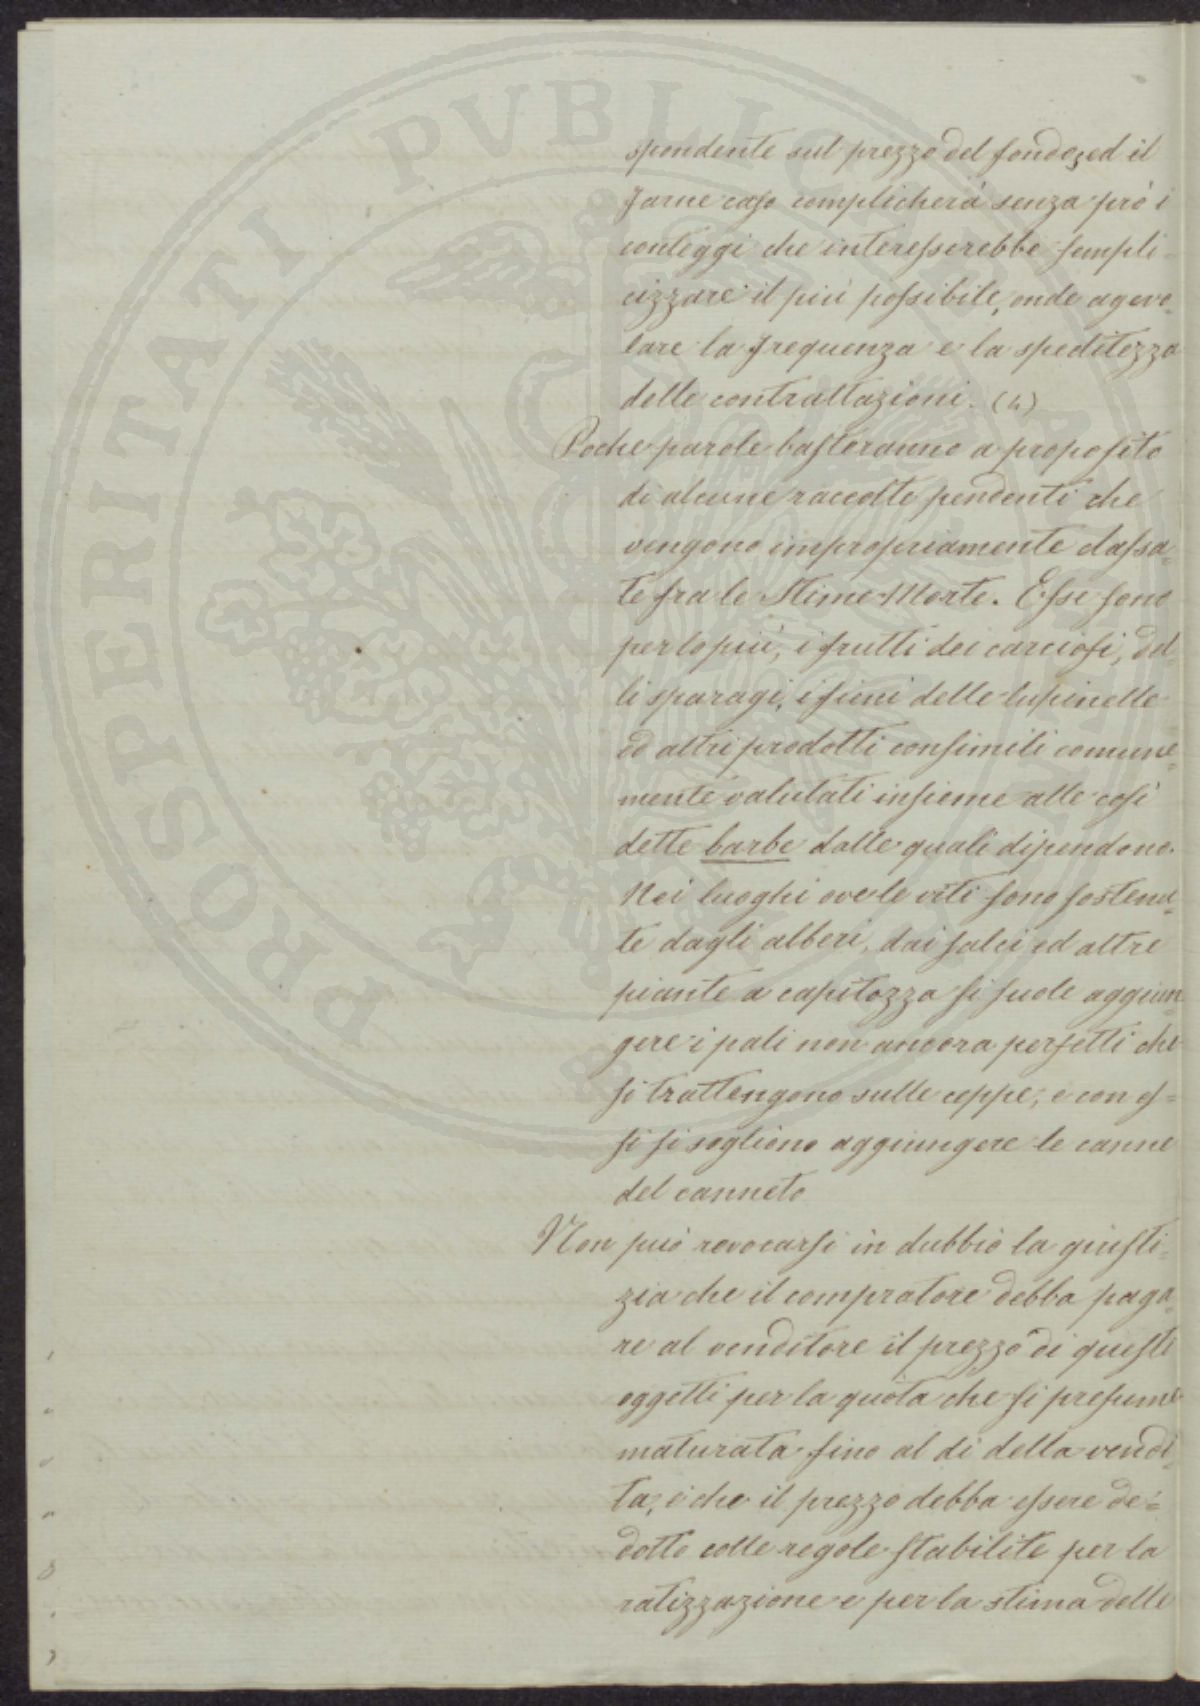 spondente sul prezzo del fondo, ed il
farne caso complicherà senza prò i
conteggi che interesserebbe sempli-
cizzare il più possibile, onde agevo-
lare la frequenza e la speditezza
delle contrattazioni. (4)
Poche parole basteranno a proposito
di alcune raccolte pendenti che
vengono impropriamente classa-
te fra le Stime Morte. Esse sono
per lo più, i frutti dei carciofi, del-
li sparagi, i fieni delle lupinelle
od altri prodotti consimili comune-
mente valutati insieme alle così
dette barbe dalle quali dipendono.
Nei luoghi ove le viti sono sostenu-
te dagli alberi, dai salci ed altre
piante a capitozza si suole aggiun-
gere i pali non ancora perfetti che
si trattengono sulle ceppe; e con es-
si si sogliono aggiungere le canne
del canneto
Non può revocarsi in dubbio la giusti-
zia che il compratore debba paga-
re al venditore il prezzo di questi
oggetti per la quota che si presume
maturata fino al dì della vendi-
ta, e che il prezzo debba essere de-
dotto colle regole stabilite per la
ratizzazione e per la stima delle
PROSPERITATI PVBLICAE